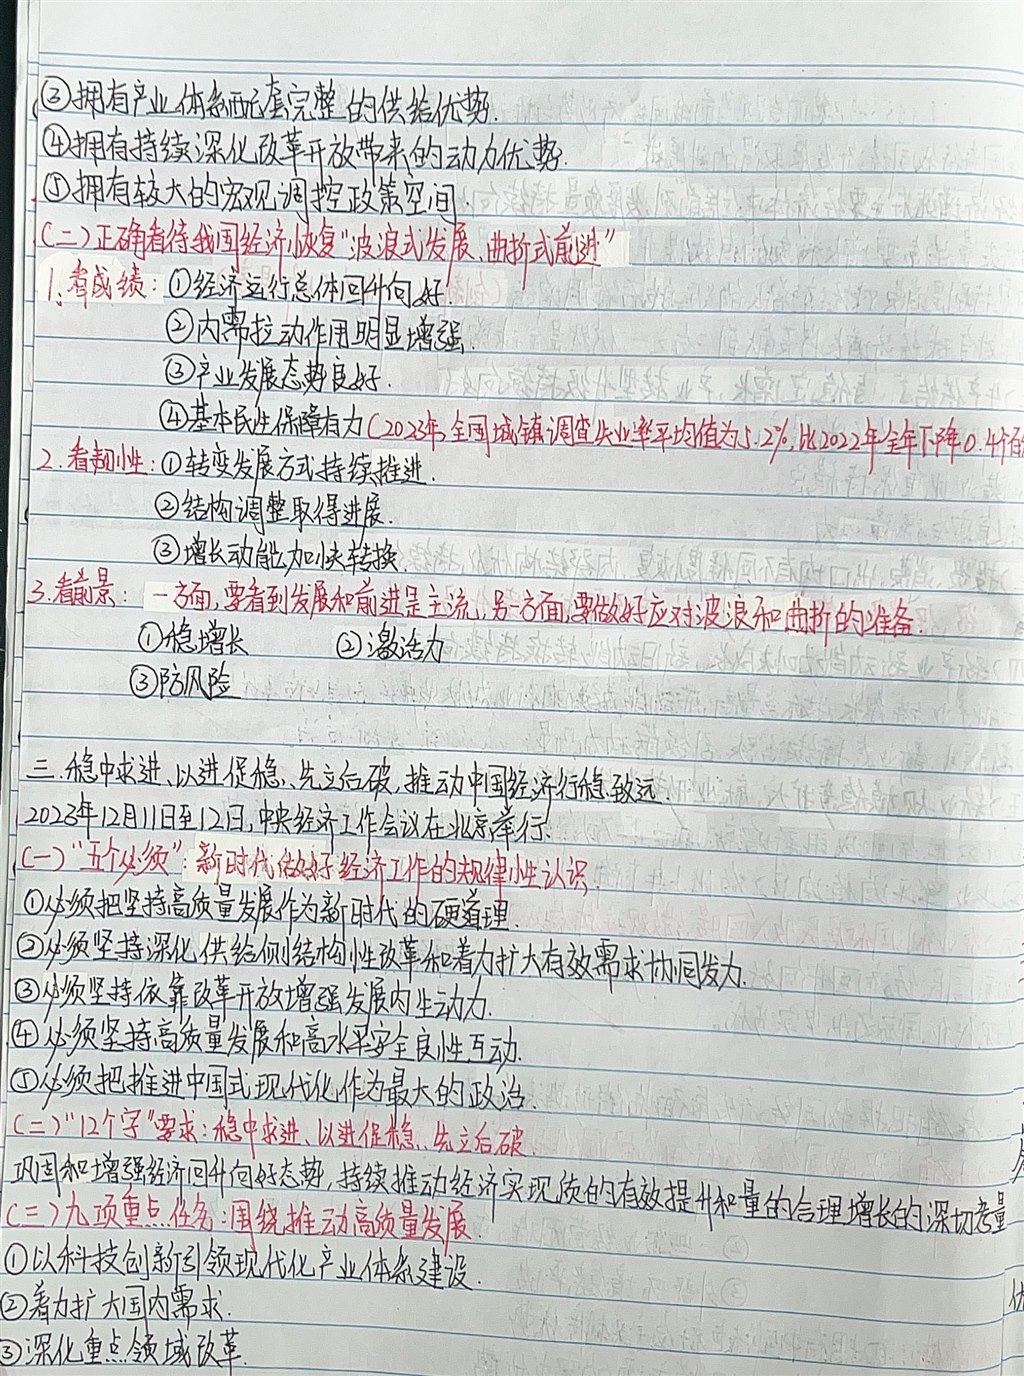 ③拥有产业体系配套完整的供给优势.
④拥有持续深化改革开放带来的动力优势.
⑤拥有较大的宏观调控政策空间.
(二)正确看待我国经济恢复"波浪式发展、曲折式前进"
1、看成绩：①经济运行总体回升向好.
②内需拉动作用明显增强.
③产业发展态势良好.
④基本民生保障有力(2023年,全国城镇调查失业率平均值为5.2%,比2022年全年下降0.4个百
2.看韧性：①转变发展方式持续推进.
②结构调整取得进展.
③增长动能加快转换.
3.看前景：一方面,要看到发展和前进是主流,另一方面,要做好应对波浪和曲折的准备.
①稳增长 ②激活力
③防风险
三.稳中求进、以进促稳、先立后破,推动中国经济行稳致远.
2023年12月11日至12日,中央经济工作会议在北京举行.
(一)"五个必须"：新时代做好经济工作的规律性认识.
①必须把坚持高质量发展作为新时代的硬道理.
②必须坚持深化供给侧结构性改革和着力扩大有效需求协同发力.
③必须坚持依靠改革开放增强发展内生动力.
④必须坚持高质量发展和高水平安全良性互动.
⑤必须把推进中国式现代化作为最大的政治.
(二)"12个字"要求：稳中求进、以进促稳、先立后破.
巩固和增强经济回升向好态势,持续推动经济实现质的有效提升和量的合理增长的深切考量
(三)九项重点任务：围绕推动高质量发展.
①以科技创新引领现代化产业体系建设.
②着力扩大国内需求.
③深化重点领域改革.